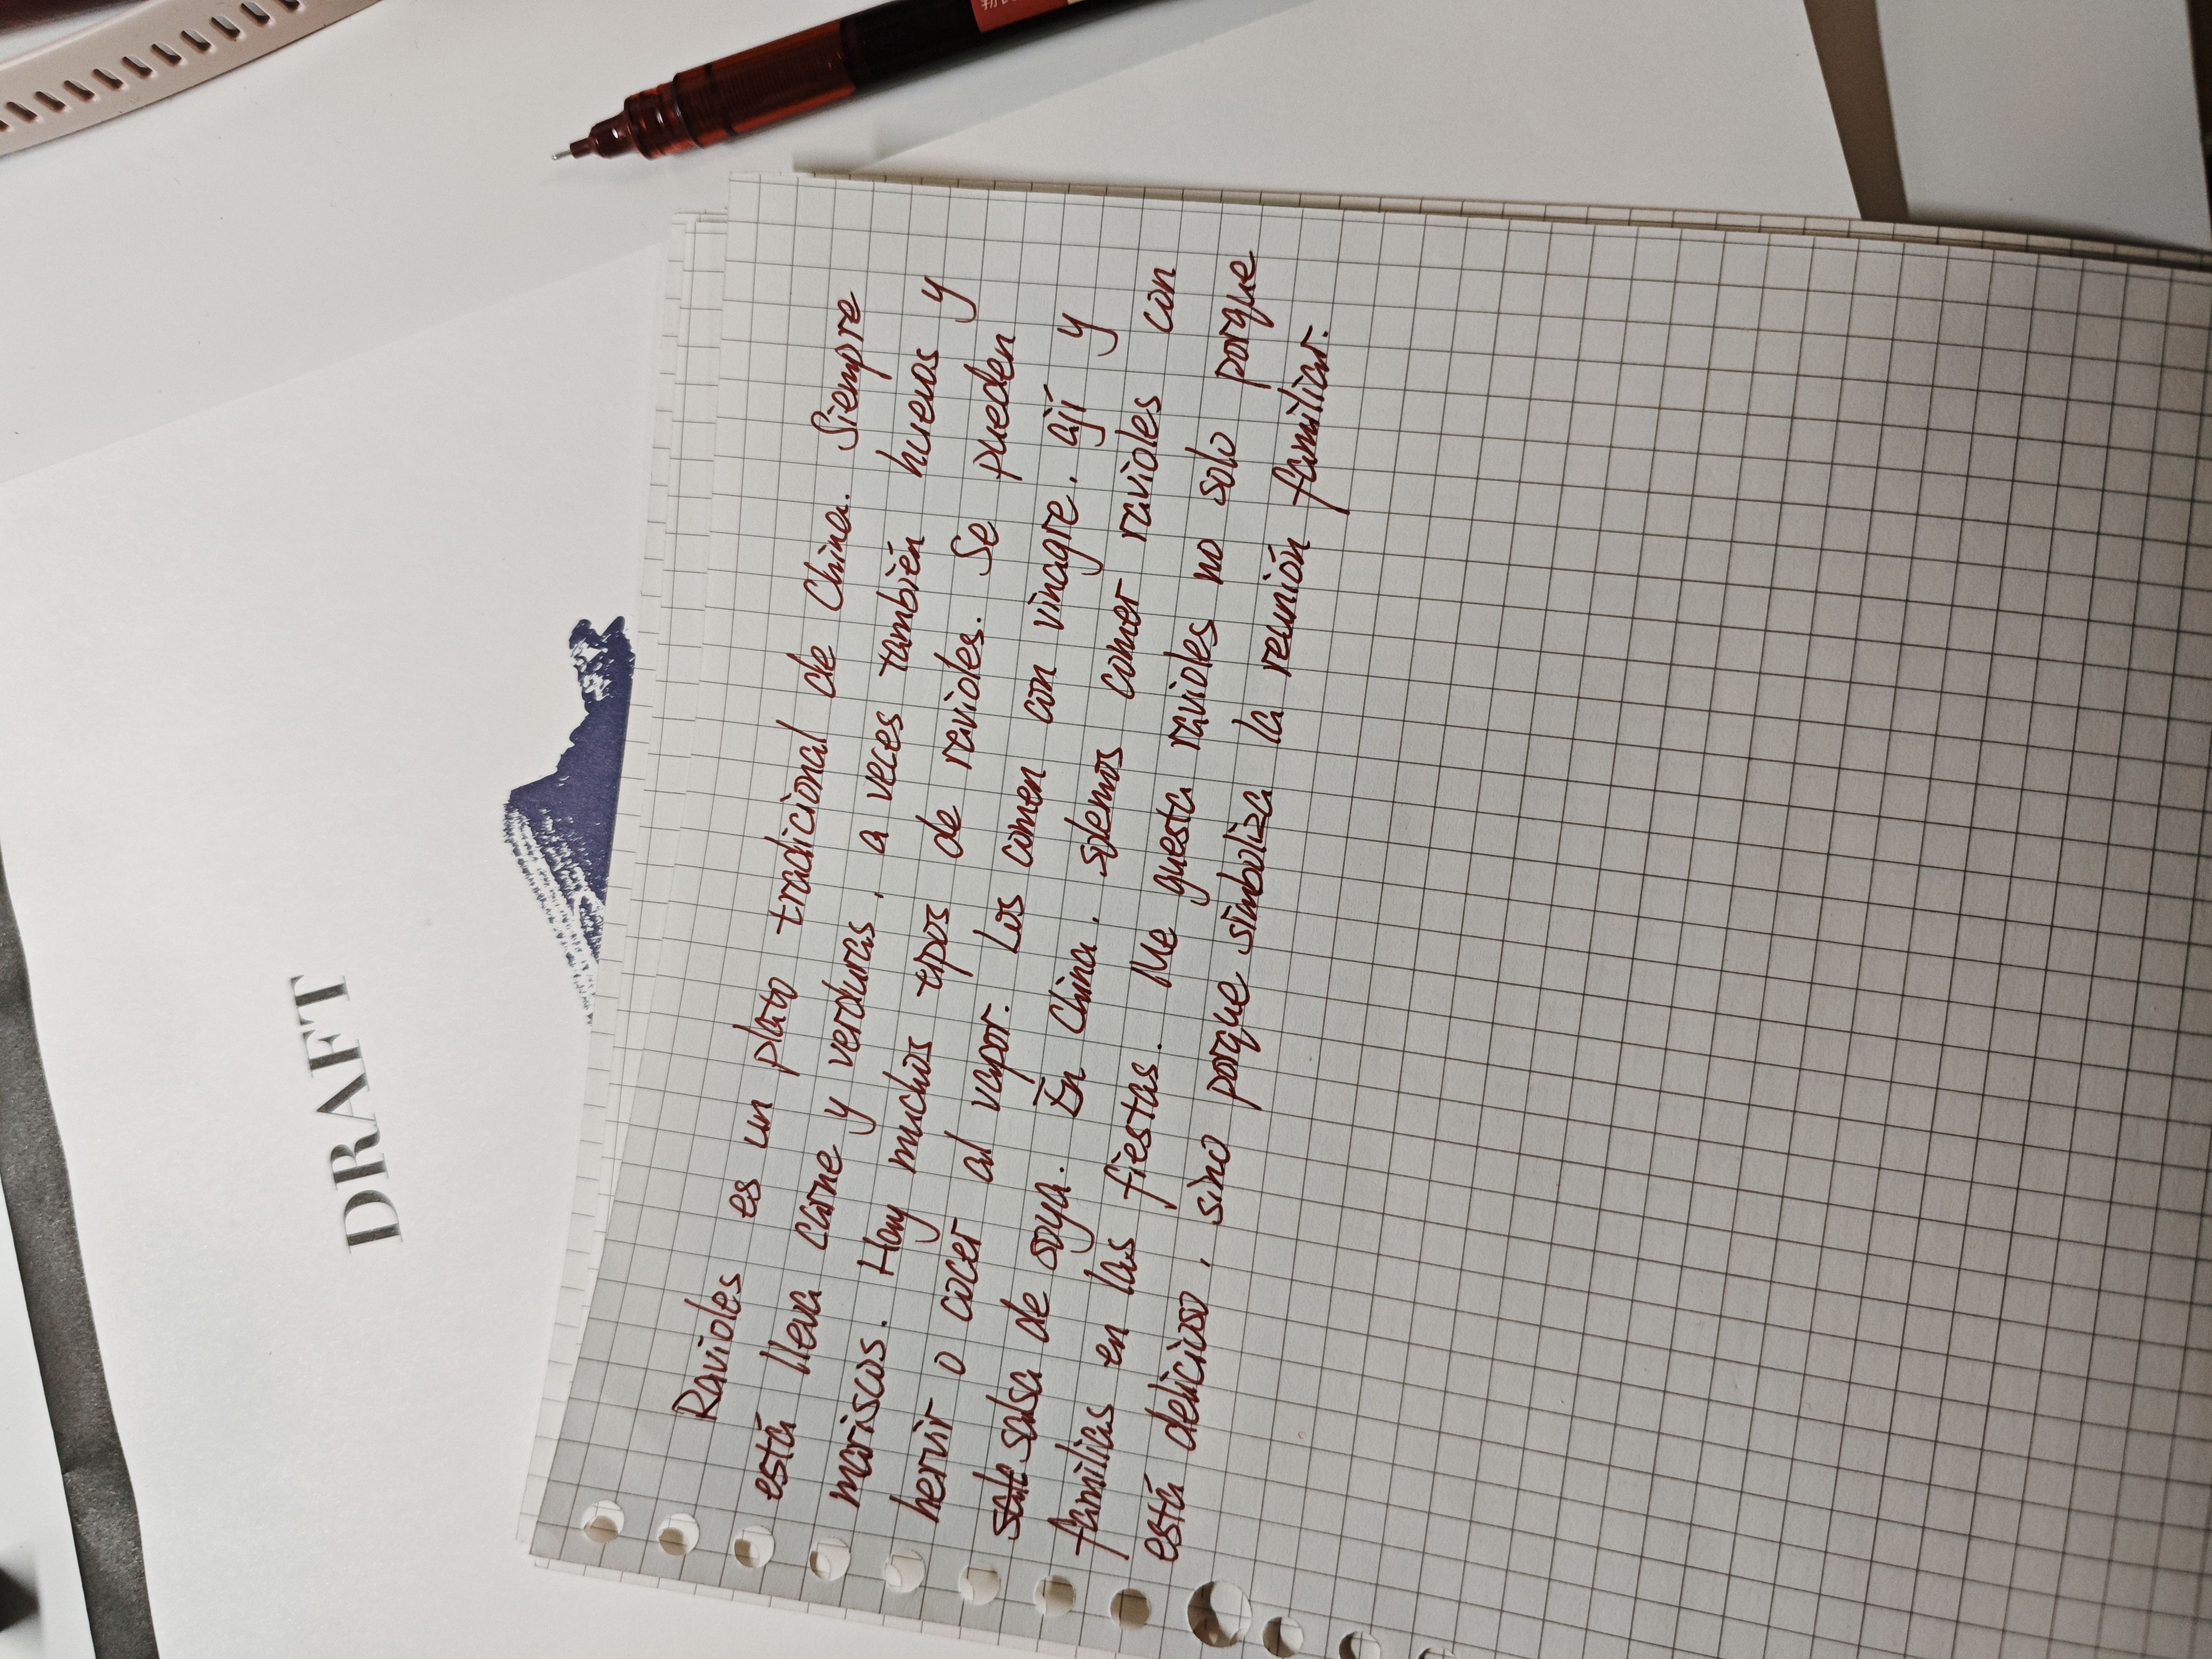 DRAFT
Ravioles es un plato tradicional de China. Siempre
está lleva carne y verduras, a veces también huevos y
mariscos. Hay muchos tipos de ravioles. Se pueden
hervir o cocer al vapor. Los comen con vinagre, ají y
salsa de soya. En China, solemos comer ravioles con
familias en las fiestas. Me guesta ravioles no solo porque
está delicioso, sino porque simboliza la reunión familiar.